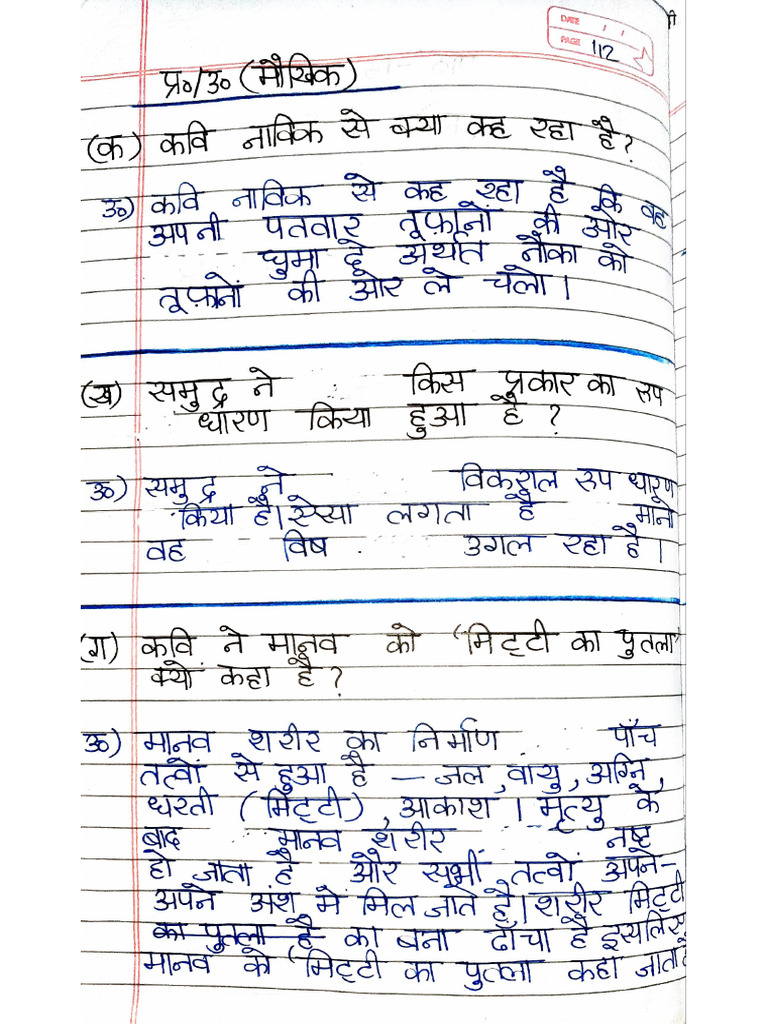 DATE / /
PAGE 112
प्र०/उ० (मौखिक)
(क) कवि नाविक से क्या कह रहा है?
उ०) कवि नाविक से कह रहा है कि वह
अपनी पतवार तूफ़ानों की ओर
घुमा दे अर्थात नौका को
तूफ़ानों की ओर ले चलो।
(ख) समुद्र ने किस प्रकार का रूप
धारण किया हुआ है ?
उ०) समुद्र ने विकराल रूप धारण
किया है। ऐस्या लगता है मानो
वह विष उगल रहा है।
(ग) कवि ने मानव को 'मिट्टी का पुतला'
क्यों कहा है?
उ०) मानव शरीर का निर्माण पाँच
तत्वों से हुआ है – जल, वायु, अग्नि,
धरती (मिट्टी), आकाश । मृत्यु के
बाद मानव शरीर नष्ट
हो जाता है और सभी तत्वों अपने-
अपने अंश में मिल जाते है। शरीर मिट्टी
का पुतला है का बना ढाँचा है इसलिए
मानव को 'मिट्टी का पुतला कहा जाता है